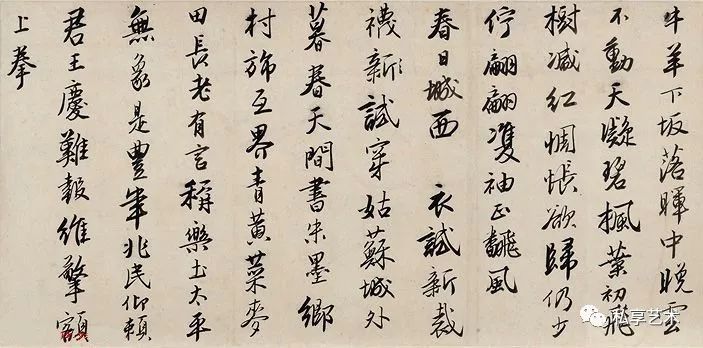 牛羊下坂落暉中晚雲
不動天凝碧楓葉初飛
樹減紅惆悵欲歸仍少
佇翩翩雙袖正飜風
春日城西 衣試新裁
襪新試穿姑蘇城外
暮春天間書朱墨鄉
村互界青黃菜麥
田長老有言稱樂土太平
無象是豊年兆民仰賴
君王慶難報維擎額
上拳
私享艺术